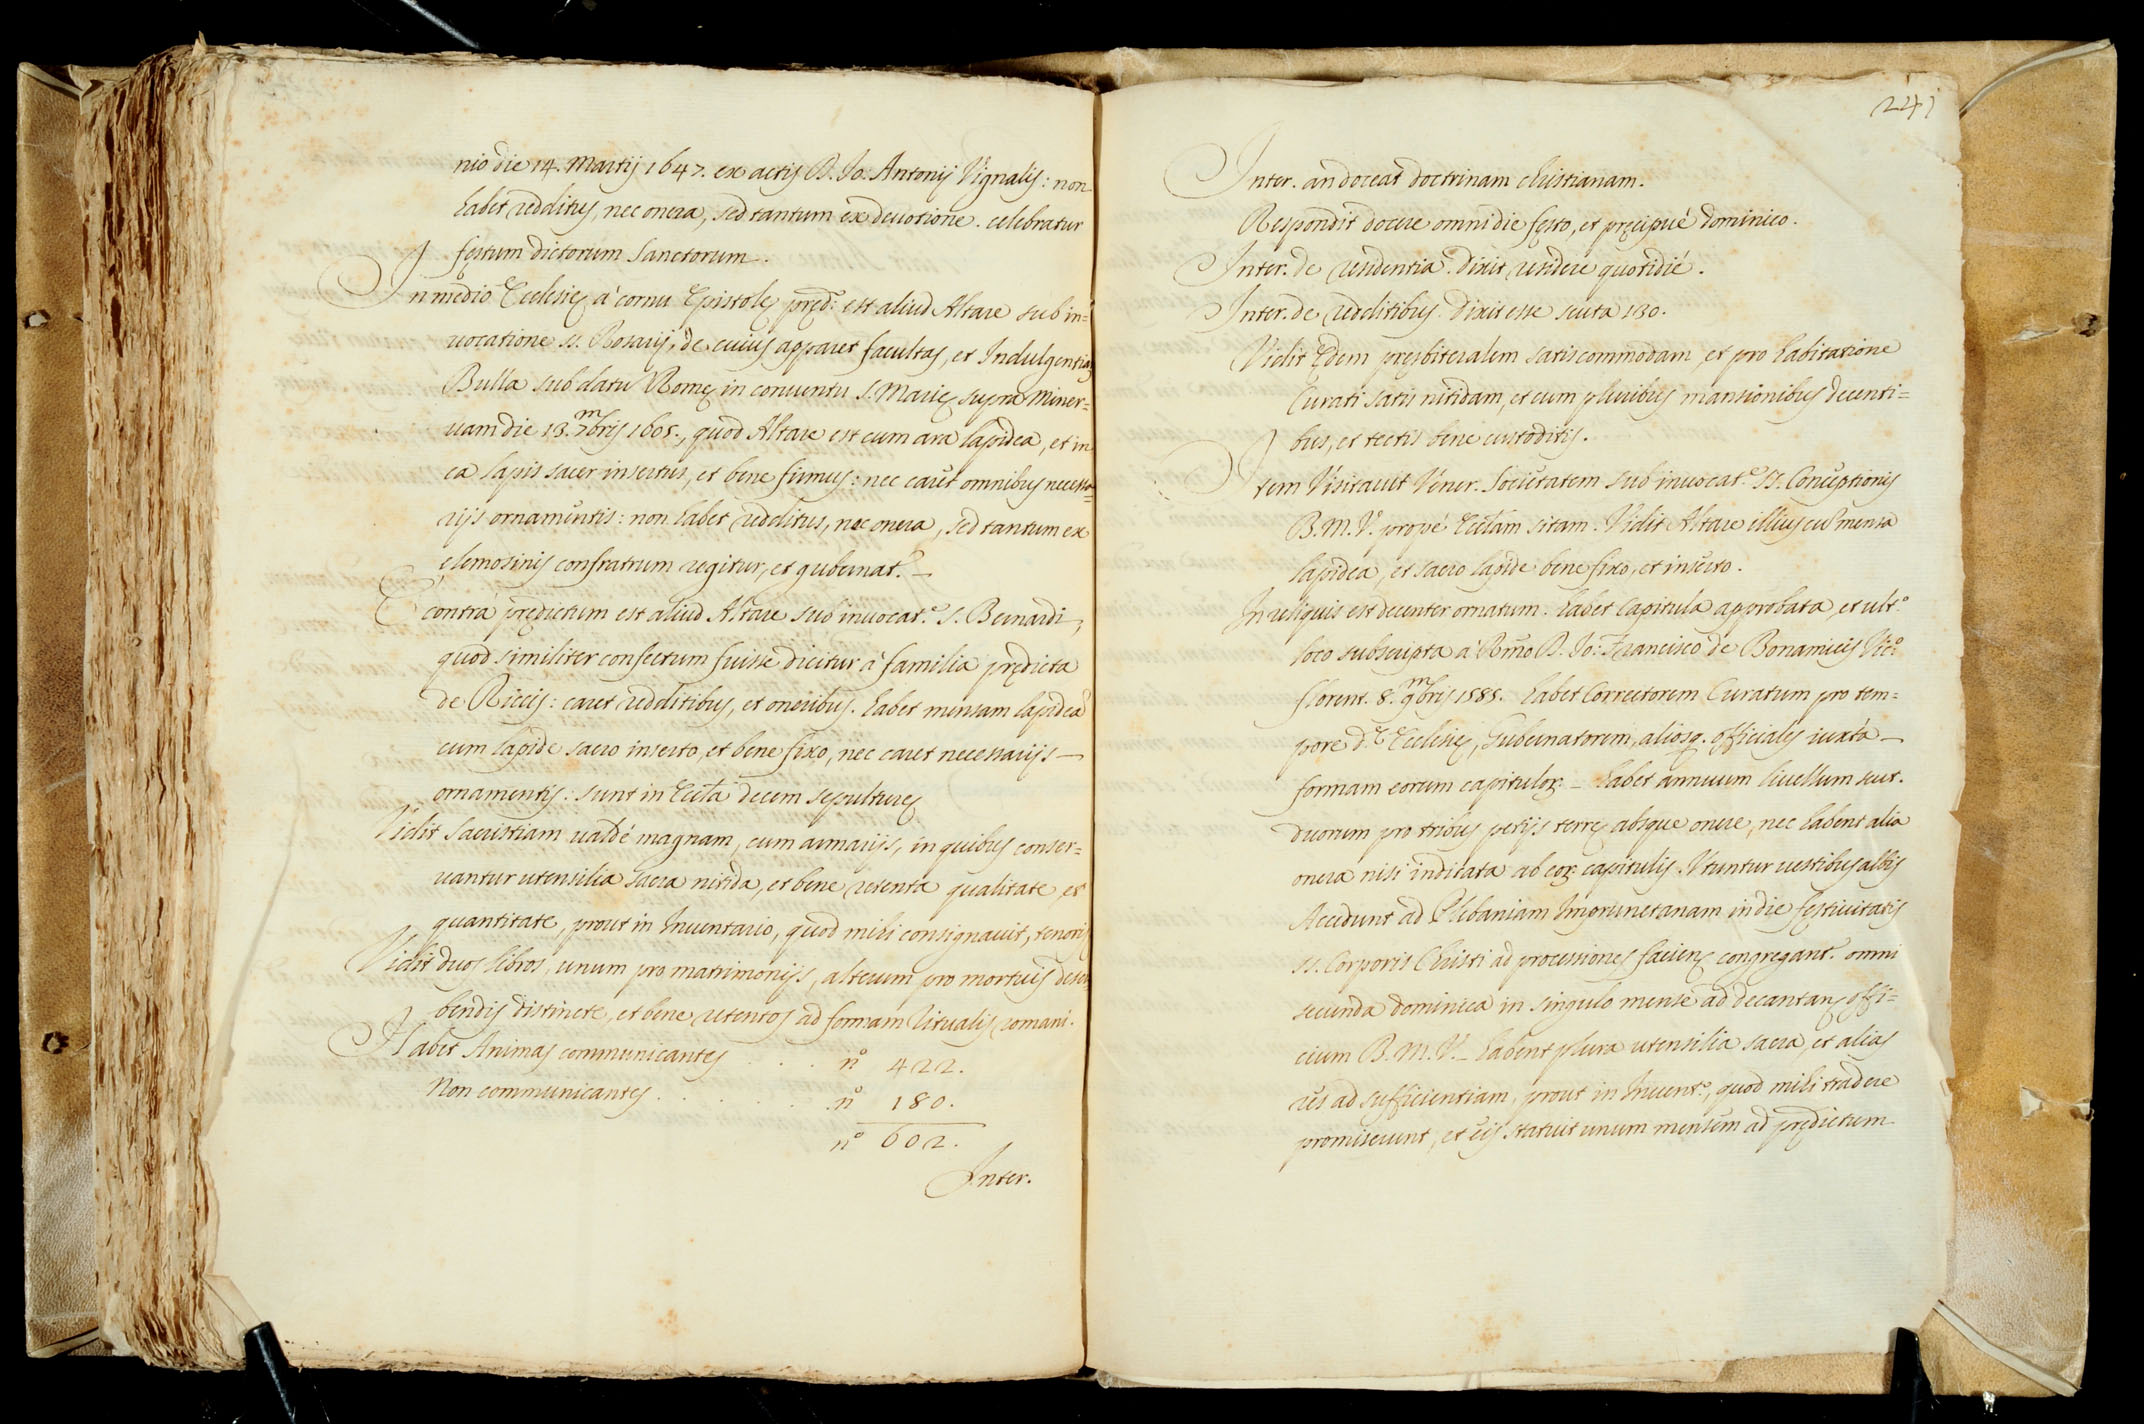 nio die 14. Martij 1647. ex actis D. Jo: Antonij Vignalis: non
habet redditus, nec onera, sed tantum ex deuotione celebratur
festum dictorum Sanctorum.
In medio Ecclesię à cornu Epistolę pręd: est aliud Altare sub in=
uocatione ss. Rosarij, de cuius apparet facultas, et Indulgentia
Bulla sub datu Romę in conuentu S. Marię supra Miner=
uam die 13. 7mbris 1605., quod Altare est cum ara lapidea, et in
ea lapis sacer insertus, et bene firmus: nec caret omnibus necessa=
rijs ornamentis: non habet redditus, nec onera, sed tantum ex
elemosinis confratrum regitur, et gubernat.r —
E contrà prędictum est aliud Altare sub inuocat.e S. Bernardi,
quod similiter confectum fuisse dicitur à familia prędicta
de Riccis: caret redditibus, et oneribus. habet mensam lapideã
cum lapide sacro inserto, et bene fixo, nec caret necessarijs —
ornamentis: sunt in Eccl̃a decem sepulturę
Vidit Sacristiam valdè magnam, cum armarijs, in quibus conser=
uantur utensilia sacra nitida, et bene retenta qualitate, et
quantitate, prout in Inuentario, quod mihi consignauit, tenoris
Vidit duos libros, unum pro matrimonijs, alterum pro mortuis descri
bendis distincte, et bene retentos ad formam Ritualis romani.
Habet Animas communicantes . . . nº 422.
Non communicantes . . . . . . nº 180.
nº 602.
Inter.
241
Inter. an doceat doctrinam christianam.
Respondit docere omni die festo, et pręcipuè dominico.
Inter. de residentia. Dixit residere quotidiè.
Inter. de redditibus. Dixit esse scuta 130.
Vidit Ędem presbiteralem satis commodam, et pro habitatione
Curati satis nitidam, et cum pluribus mansionibus decenti=
bus, et tectis bene custoditis.
Item Visitauit Vener. Societatem sub inuocat.e SS. Conceptionis
B. M. V. propè Eccl̃am sitam. Vidit Altare illius cũ mensa
lapidea, et sacro lapide bene fixo, et inserto.
In reliquis est decenter ornatum. habet Capitula approbata, et ult.o
loco subscripta à Rm̃o D. Jo: Francisco de Bonamicis Vic.o
florent. 8. 9mbris 1585. habet Correctorem Curatum pro tem=
pore d.e Ecclesię, Gubernatorem, aliosq. officiales iuxtà —
formam eorum capitulor: — habet annuum liuellum scut.
duorum pro tribus petijs terrę absque onere, nec habent alia
onera nisi inditata ab eor: capitulis. Vtuntur vestibus albis
Accedunt ad Plebaniam Imprunetanam in die festiuitatis
ss. Corporis Christi ad processiones facien: congregant.r omni
secunda dominica in singulo mense ad decantan: offi=
cium B. M. V. — habent plura utensilia sacra, et alias
res ad sufficientiam, prout in Inuent.o, quod mihi tradere
promiserunt, et eis statuit unum mensem ad prędictum